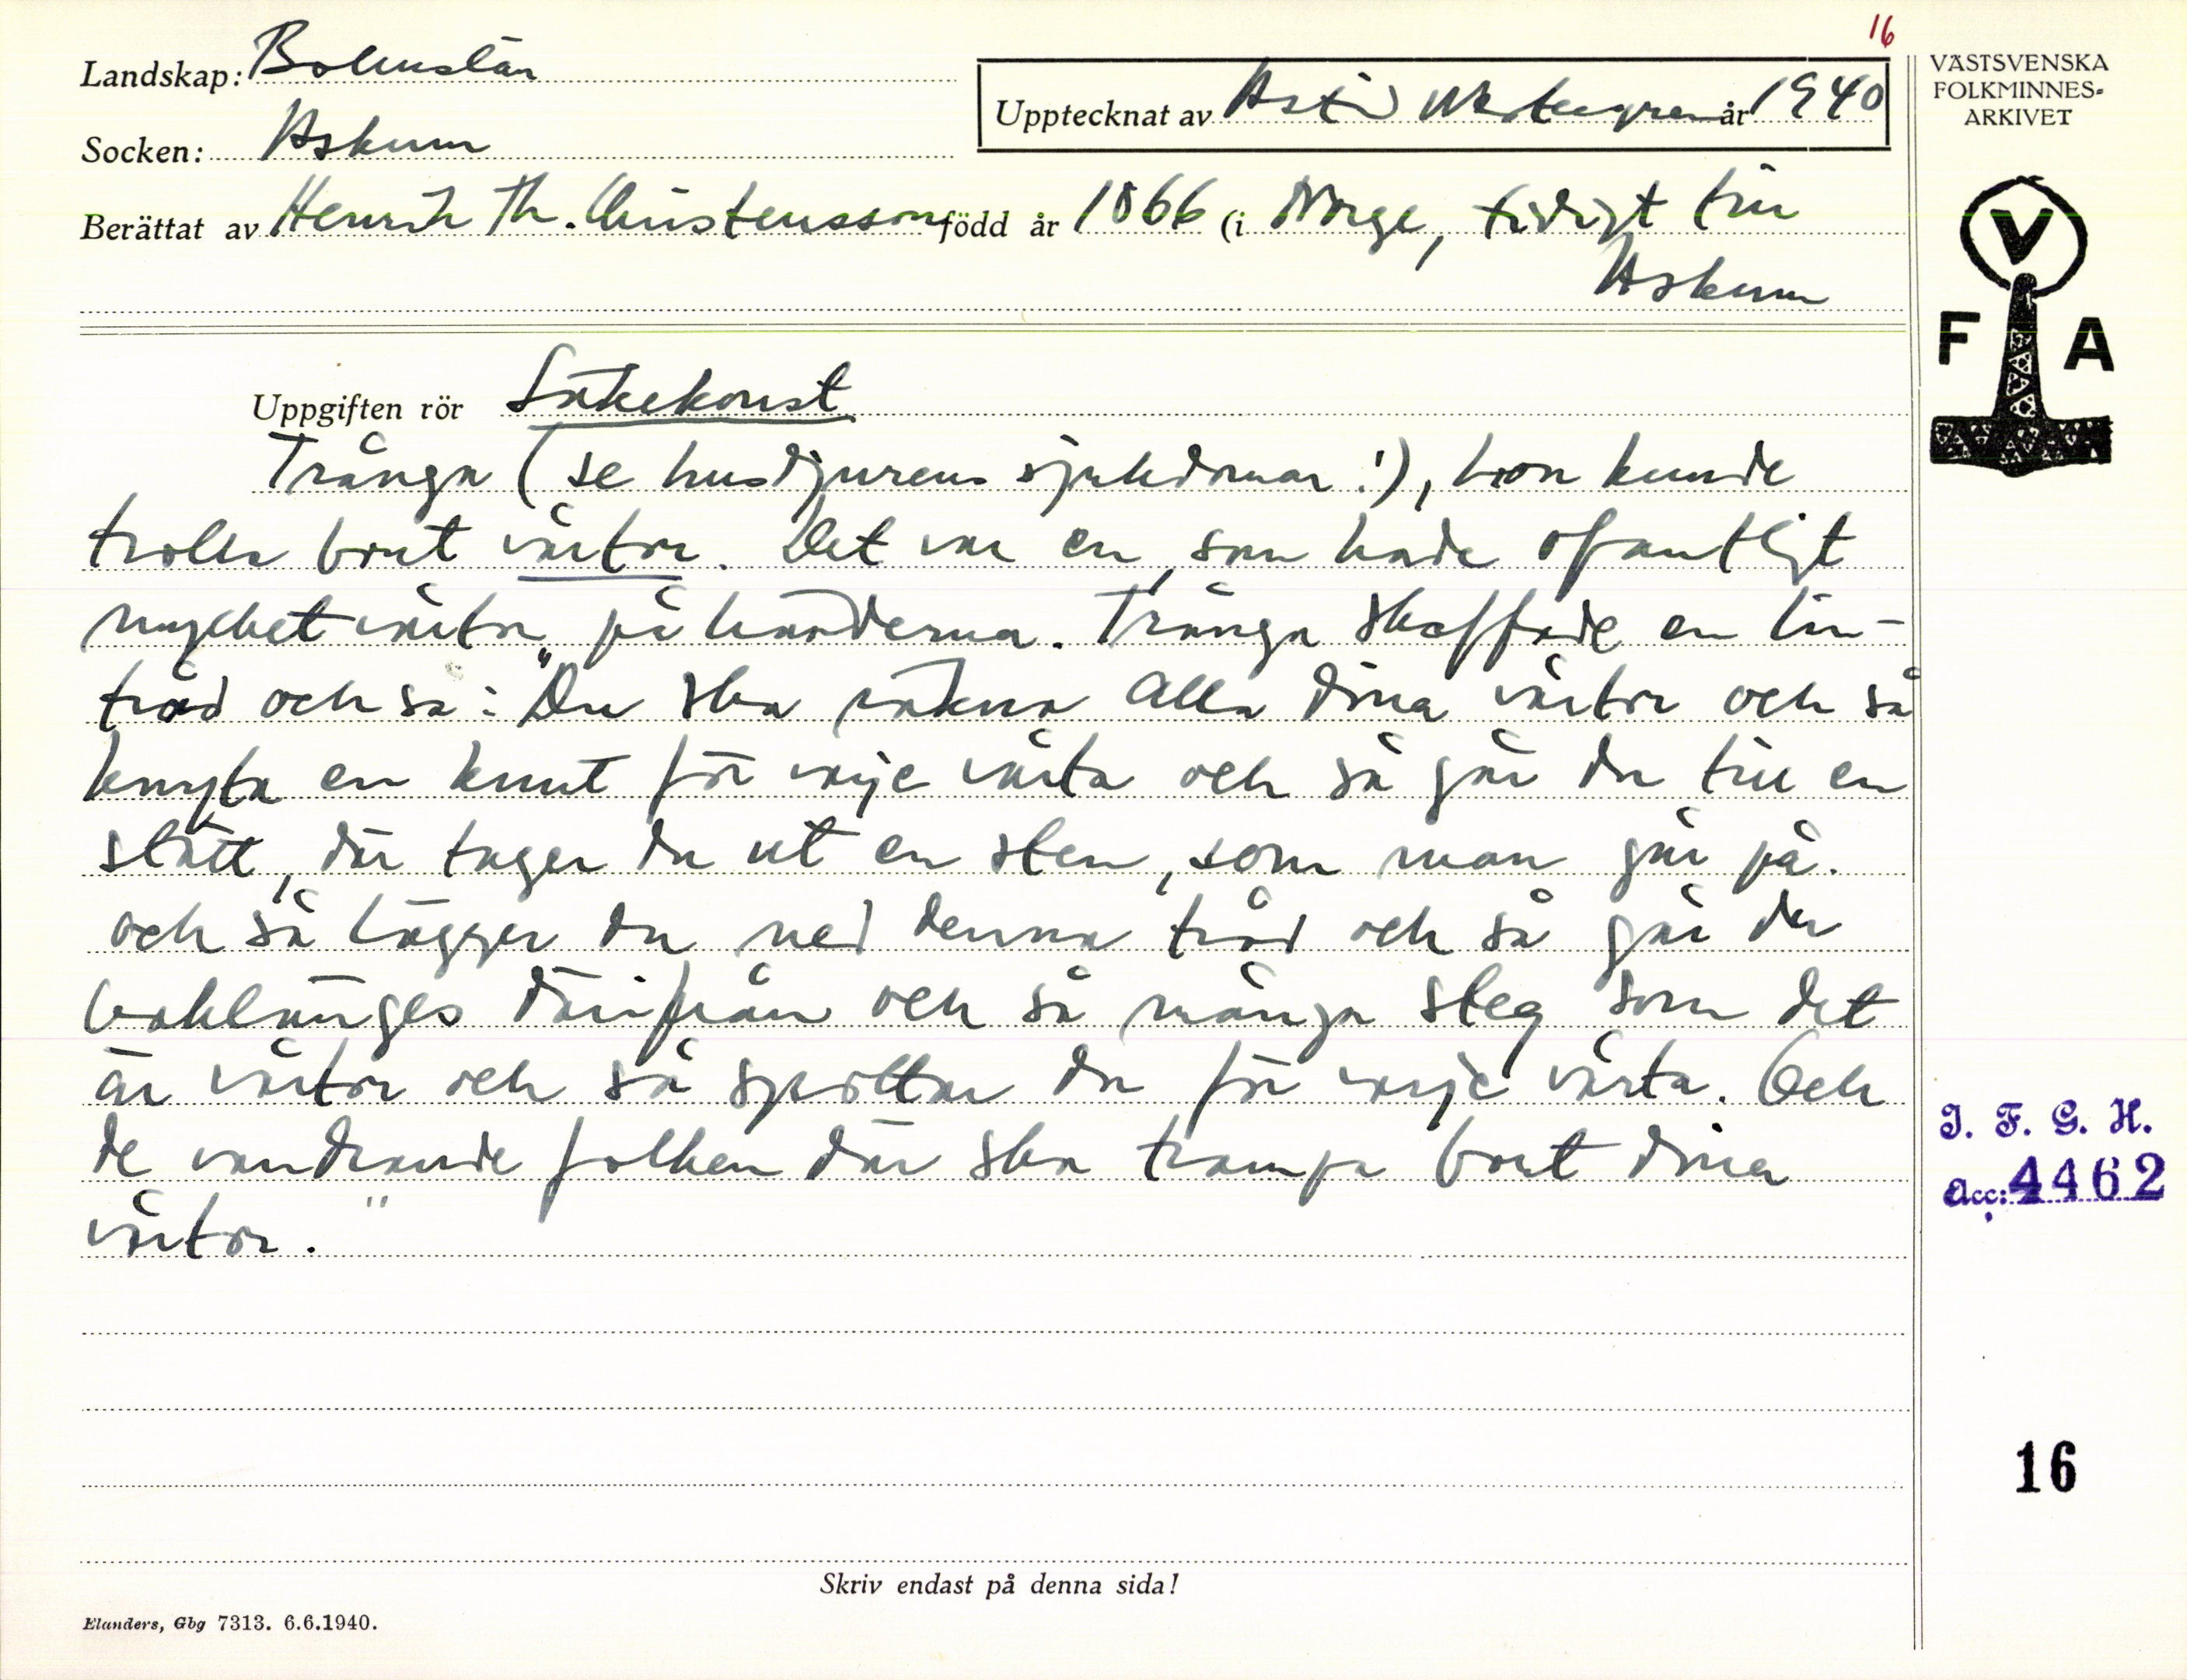 16
Landskap: Bohuslän
Upptecknat av Astrid år 1940
Socken: Askum
Berättat av Henrik Th. Christensson född år 1866 (i Norge, tidigt till
Askum
VÄSTSVENSKA
FOLKMINNES-
ARKIVET
V
F A
Uppgiften rör Läkekonst
Trånga (se husdjurens sjukdomar!), hon kunde
trolla bort vårtor. Det var en, som hade ofantligt
mycket vårtor på händerna. Trånga skaffade en lin-
tråd och sa: "Du ska räkna alla dina vårtor och så
knyta en knut för varje vårta och så går du till en
stätt, där tager du ut en sten, som man går på.
och så lägger du ned denna tråd och så går du
baklänges därifrån och så många steg som det
är vårtor och så spottar du för varje vårta. Och
de vandrande folken där ska trampa bort dina
vårtor."
I. F. G. H.
Acc: 4462
16
Skriv endast på denna sida!
Elanders, Gbg 7313. 6.6.1940.